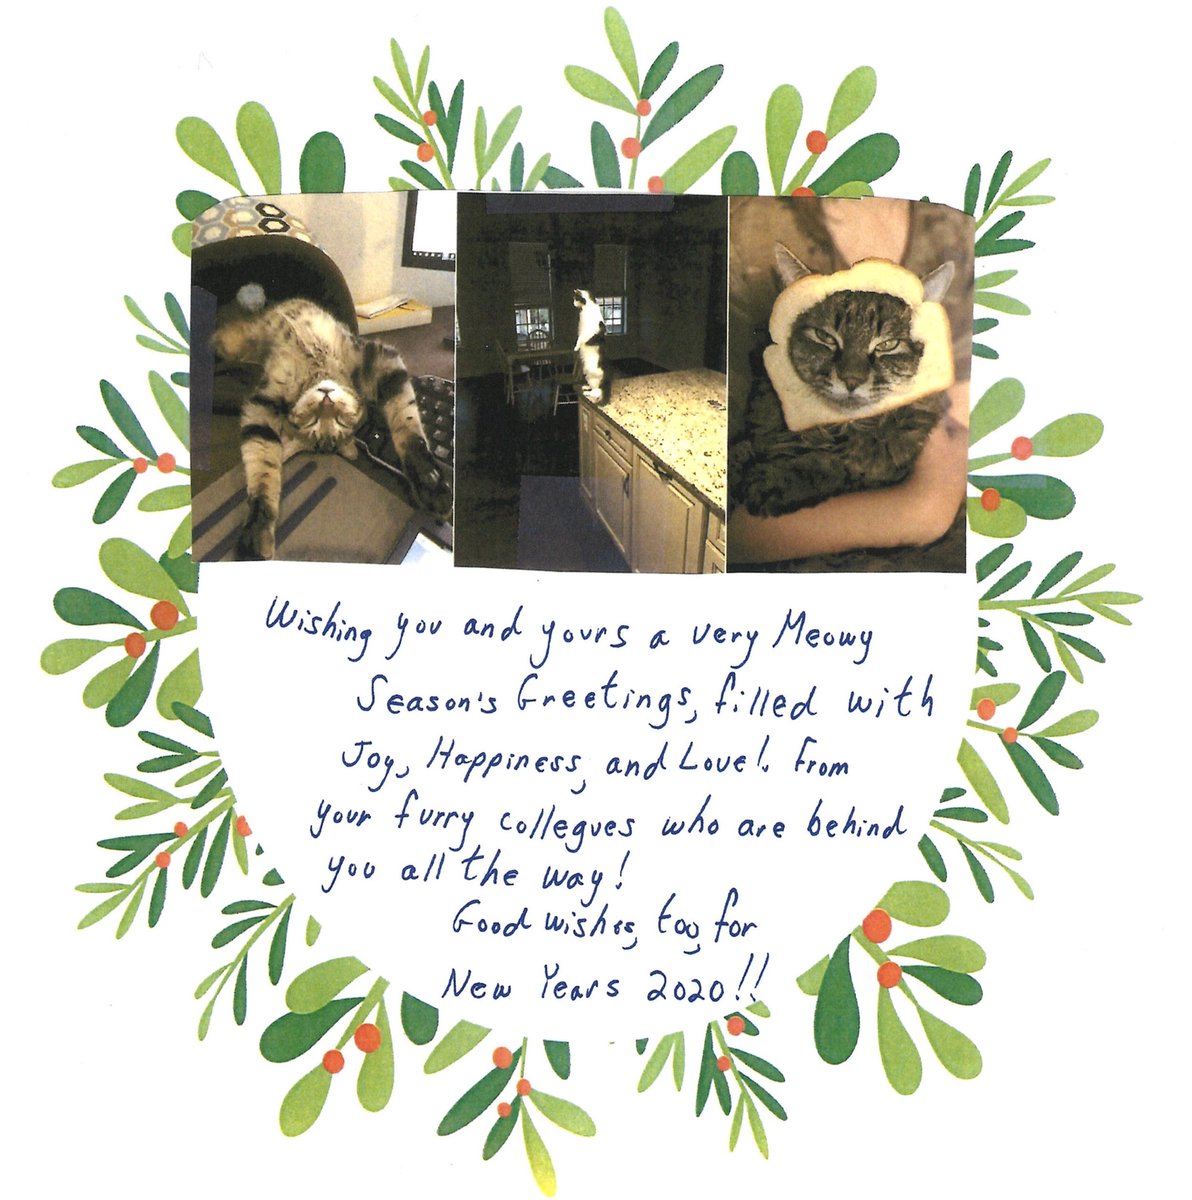 Wishing you and yours a very Meowy
Season's Greetings, filled with
Joy, Happiness, and Love!. From
your furry collegues who are behind
you all the way!
Good wishes, too, for
New Years 2020!!